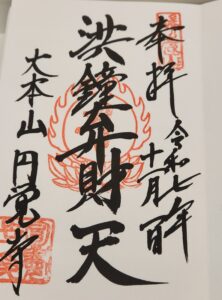 奉拝
令和七年
十一月
洪鐘弁財天
大本山円覚寺